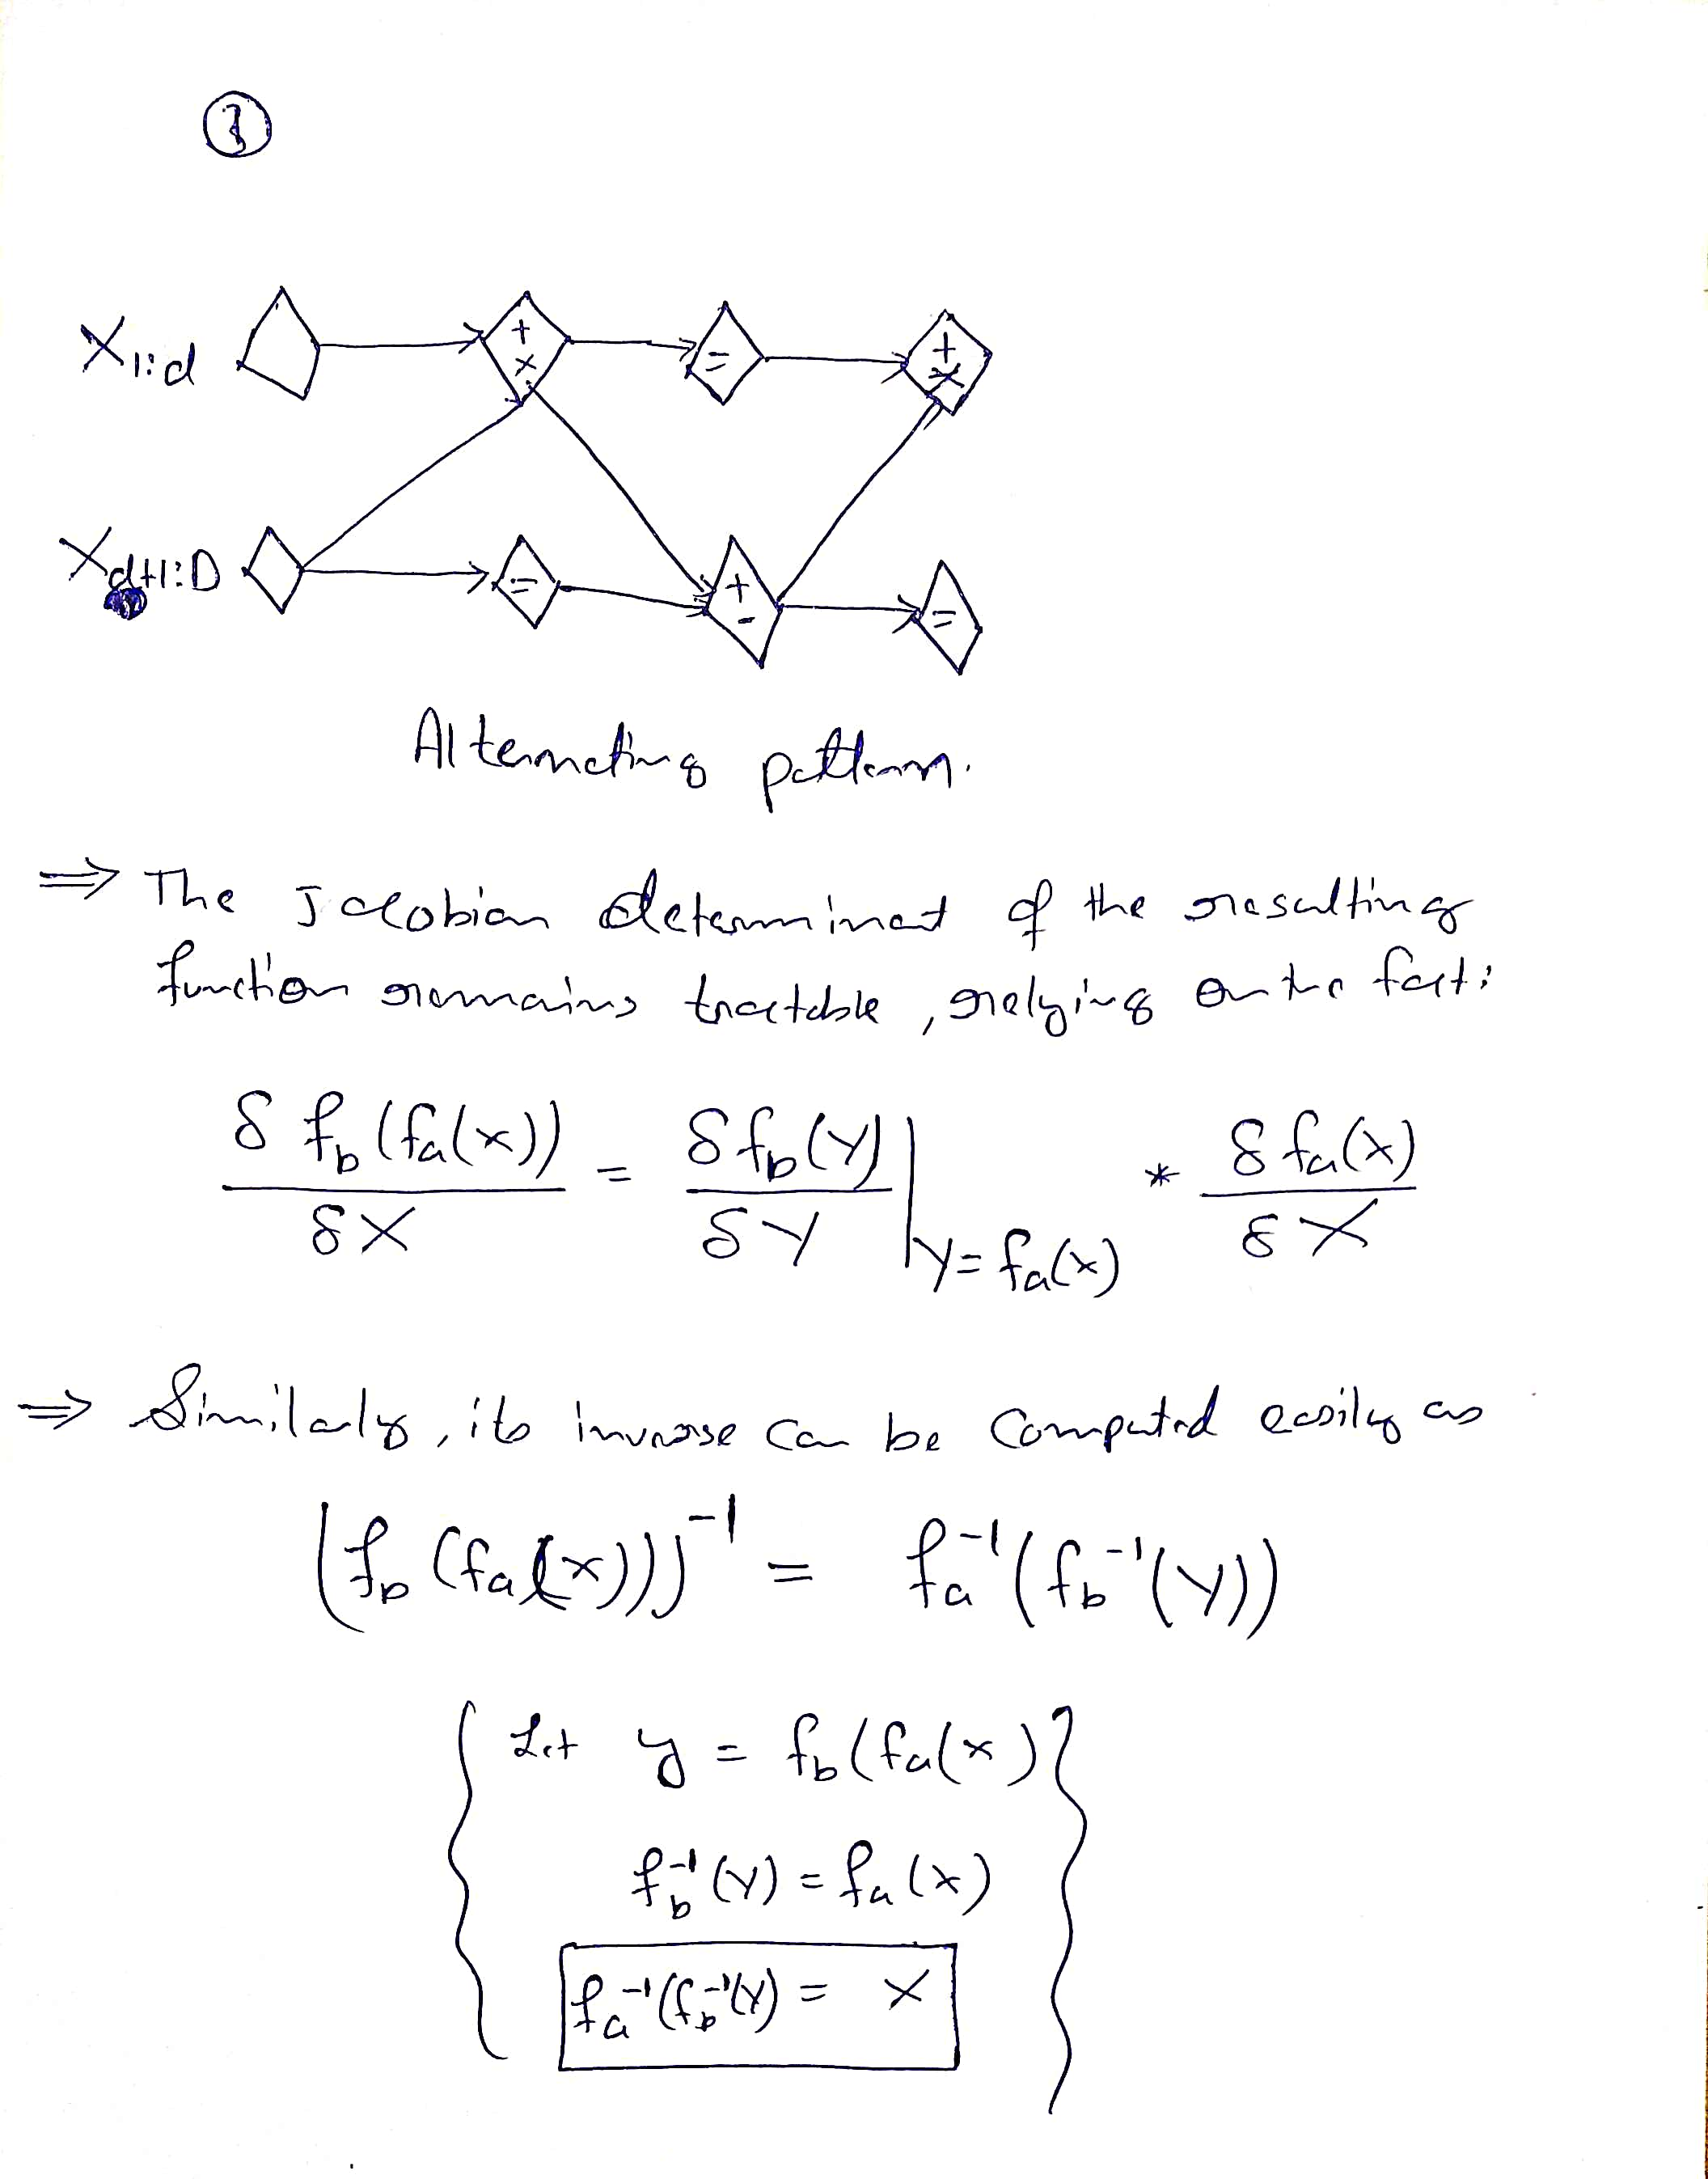 3
X1:d
+
×
=
+
×
Xd+1:D
=
+
-
=
Alternating pattern.
⇒ The Jacobian determinant of the resulting
function remains tractable, relying on the fact:
δ fb(fa(x)) / δX = δ fb(Y) / δY |Y=fa(x) * δ fa(x) / δX
⇒ Similarly, its inverse can be computed easily as
(fb(fa(x)))⁻¹ = fa⁻¹(fb⁻¹(Y))
Let y = fb(fa(x)
fb⁻¹(Y) = fa(x)
fa⁻¹(fb⁻¹(Y) = X